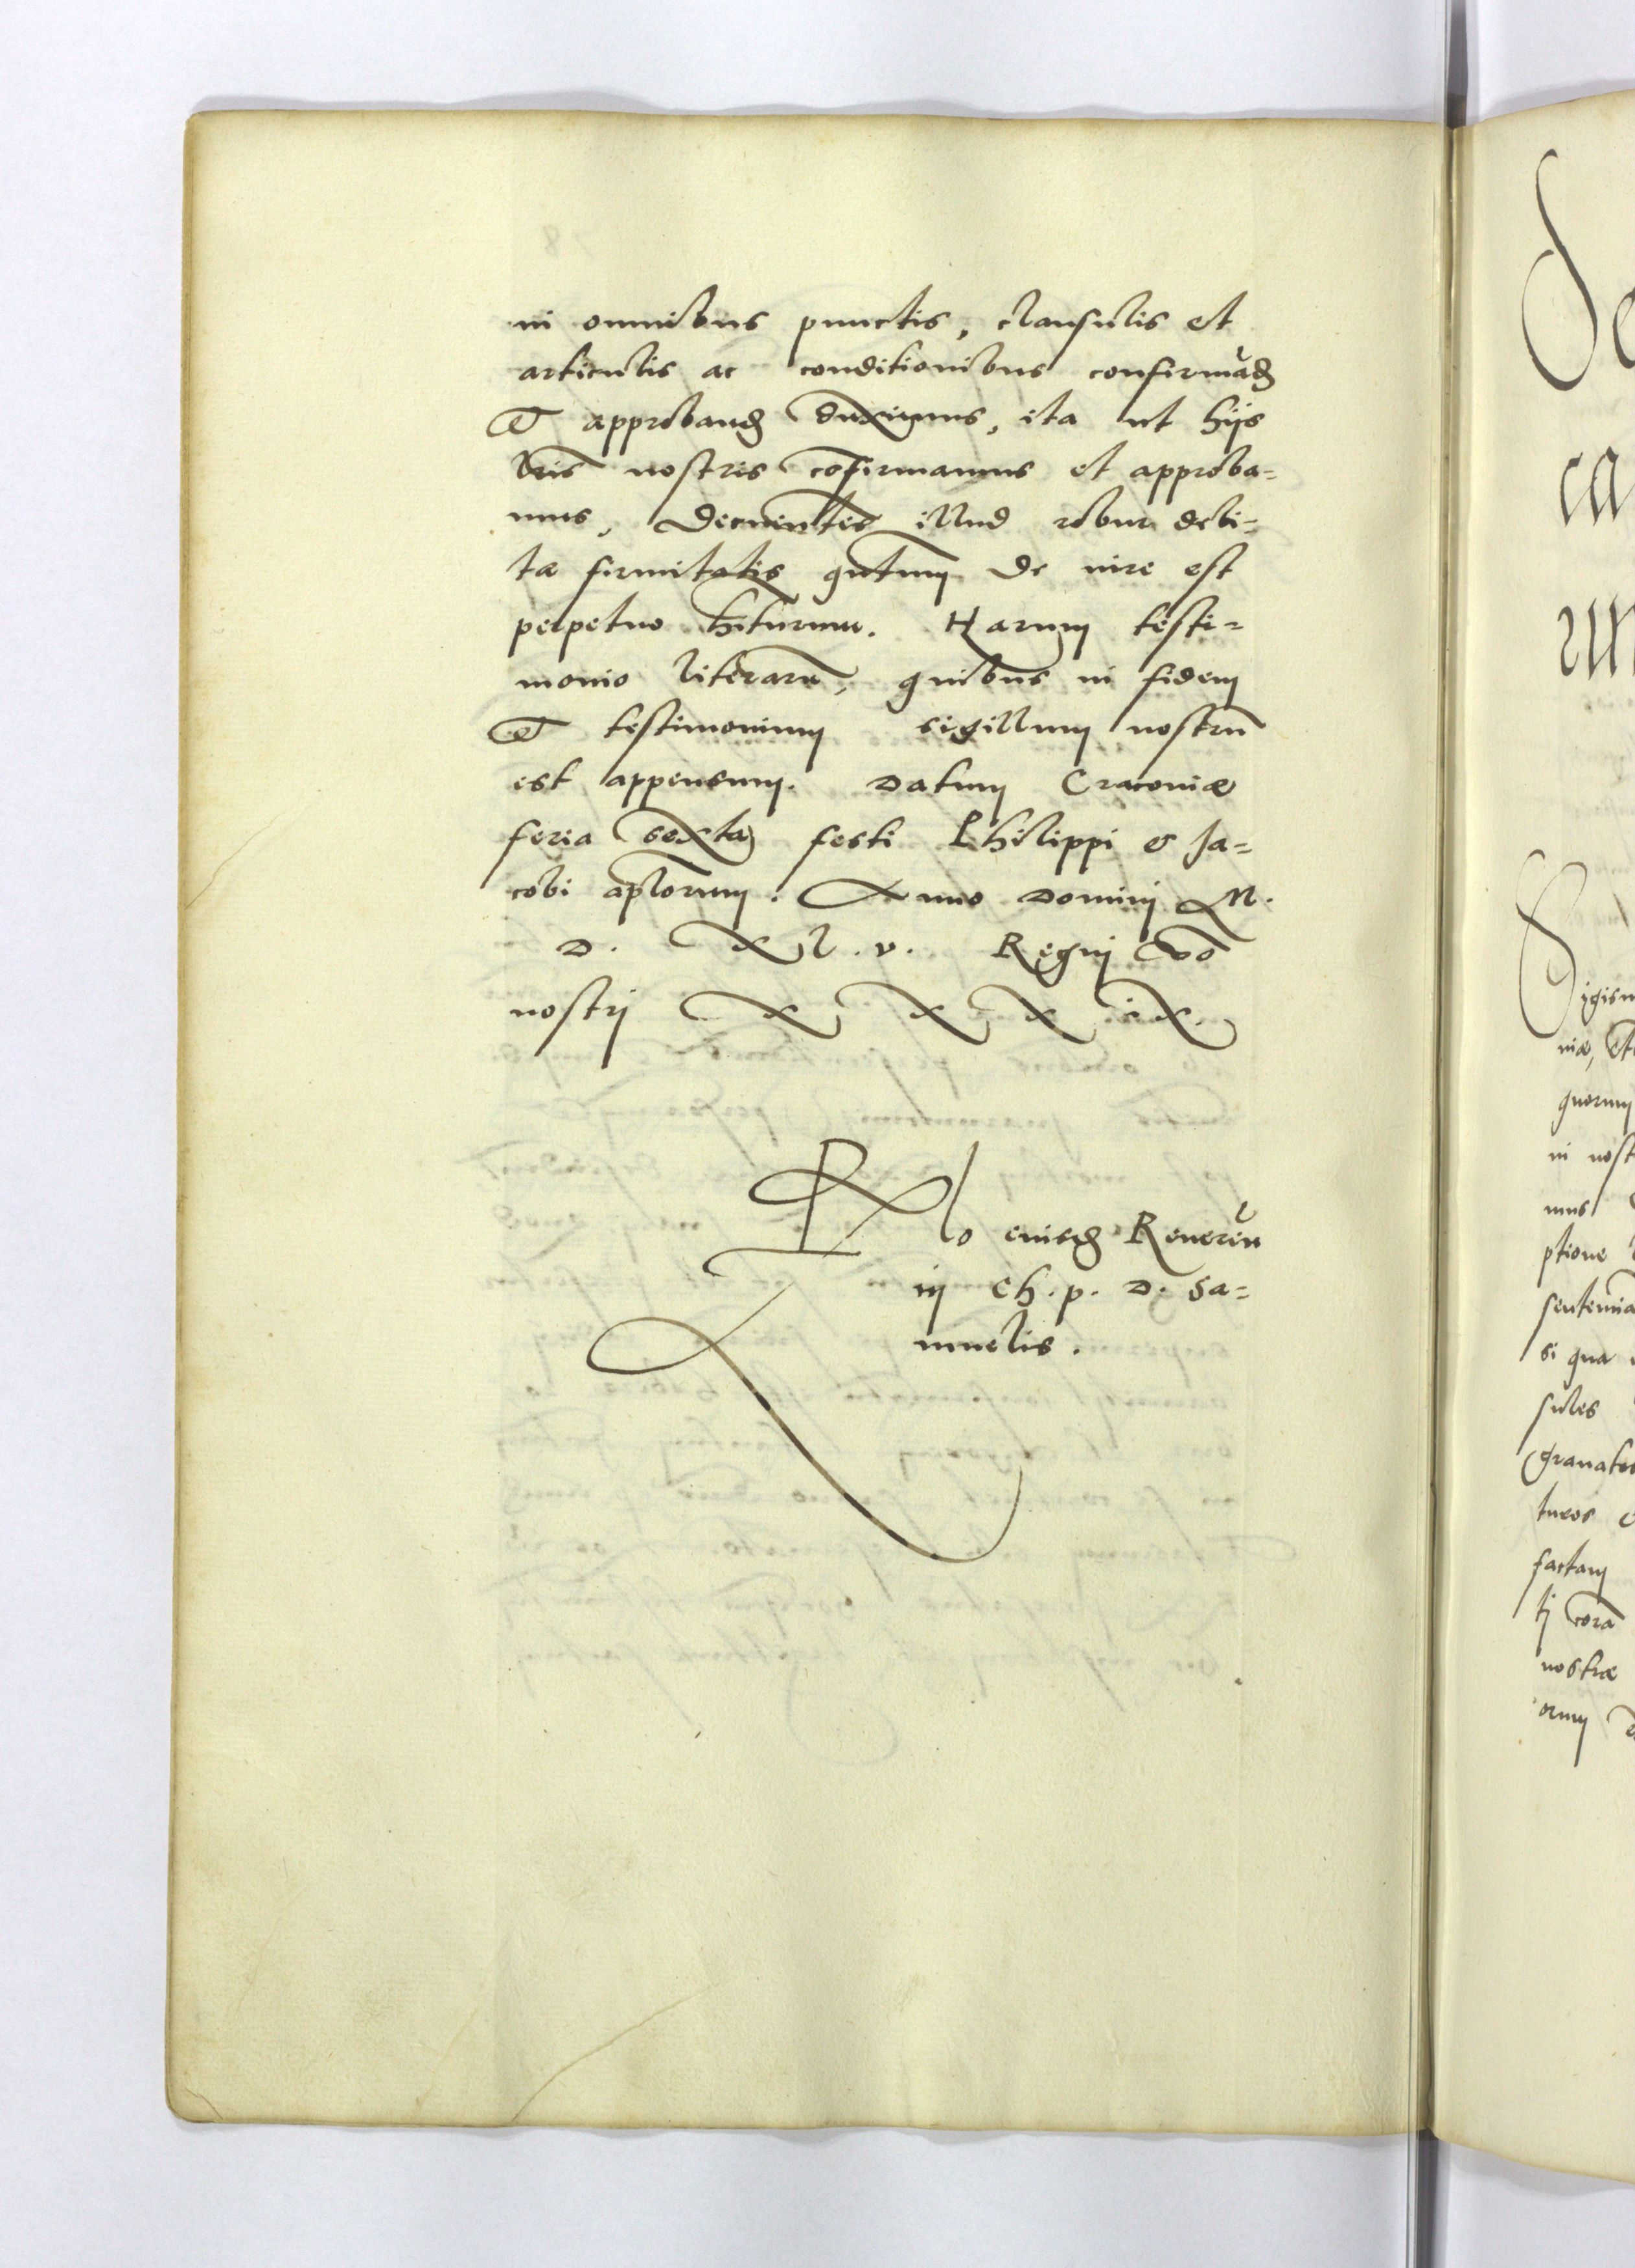 in omnibus punctis, clausulis et
articulis ac conditionibus confirmād
Et approband duximus, ita ut hijs
lr̄is nostris cōfirmamus et approba=
mus, Decernentes illud robur debi=
tæ firmitatis qntum de iure est
perpetuo h̄iturum. Harum testi=
monio literarū, quibus in fidem
Et testimonium sigillum nostrū
est appensum. Datum Cracouiæ
feria sexta festi Philippi & Ja=
cobi ap̄lorum. Anno Domini M.
D. XL.v. Regni vō
nostri XXXiX.
Rlo eiusd Reueren
in Ch. p. D. Sa=
muelis.
Se
ca
run
Sigism
niæ, Et
quorum
in nost
mus
ptione
sentenia
si qua
sules
granatos
tueor
factam
tj corā
nostræ
orum